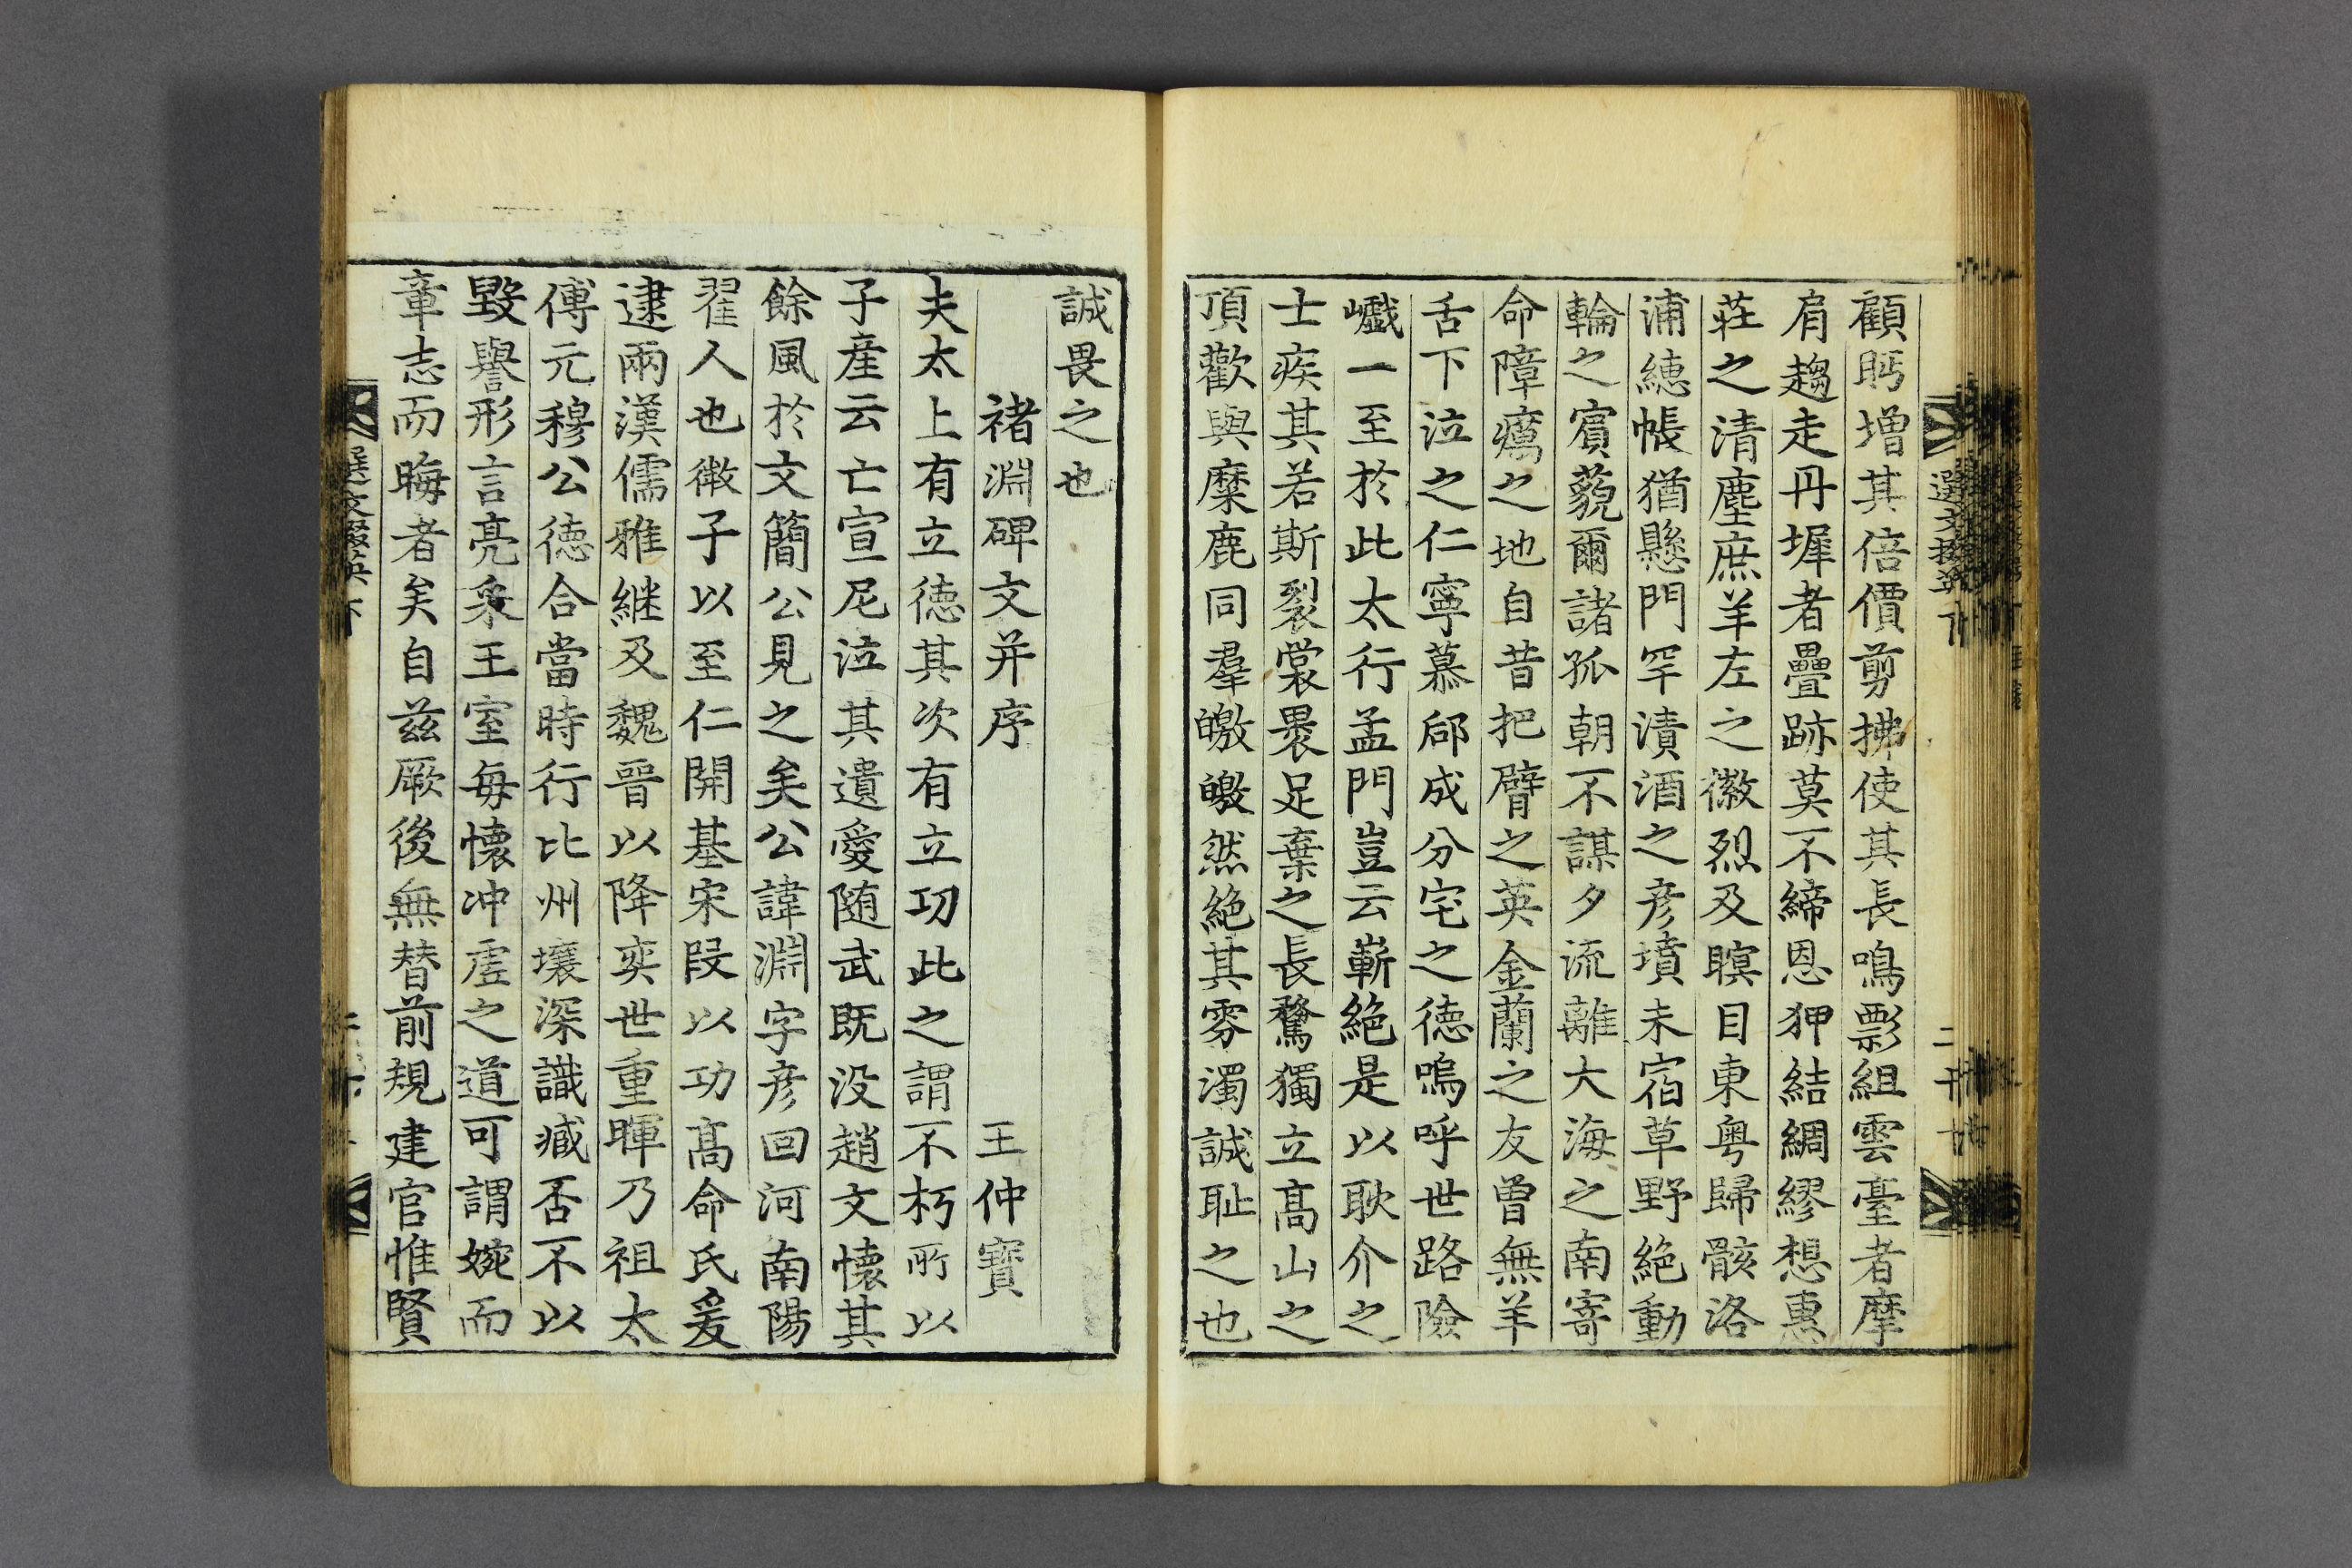 顧眄增其倍價剪拂使其長鳴影組雲臺者摩
肩趨走丹墀者疊跡莫不締恩狎結綢繆想惠
莊之清塵庶羊左之徽烈及瞑目東粤歸骸洛
浦繐帳猶懸門罕漬酒之彦墳未宿草野絶動
輪之賓藐爾諸孤朝不謀夕流離大海之南寄
命障癘之地自昔把臂之英金蘭之友曾無羊
舌下泣之仁寧慕郈成分宅之徳嗚呼世路險
巇一至於此太行孟門豈云嶄絶是以耿介之
士疾其若斯裂裳裹足棄之長騖獨立髙山之
頂歡與麋鹿同羣皦皦然絶其雰濁誠耻之也
誠畏之也
褚淵碑文并序 王仲寶
夫太上有立徳其次有立功此之謂不朽所以
子産云亡宣尼泣其遺愛随武既没趙文懷其
餘風於文簡公見之矣公諱淵字彦回河南陽
翟人也微子以至仁開基宋段以功髙命氏爰
逮兩漢儒雅継及魏晉以降奕世重暉乃祖太
傅元穆公徳合當時行比州壤深識臧否不以
毀譽形言亮采王室每懷冲虚之道可謂婉而
章志而晦者矣自兹厥後無替前規建官惟賢
選文掇英下